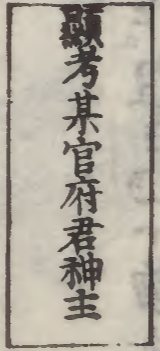 顯考某官府君神主